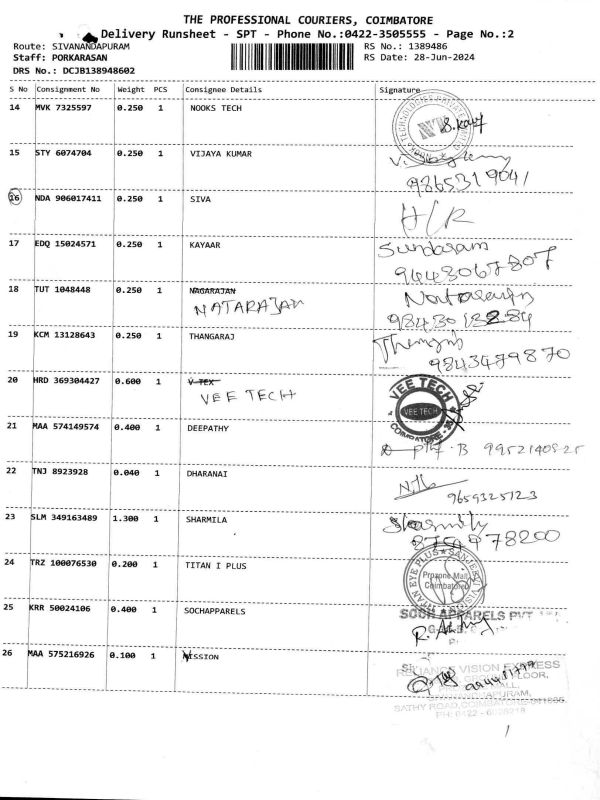 THE PROFESSIONAL COURIERS, COIMBATORE
Delivery Runsheet - SPT - Phone No.:0422-3505555 - Page No.:2
Route: SIVANANDAPURAM RS No.: 1389486
Staff: PORKARASAN RS Date: 28-Jun-2024
DRS No.: DCJB138948602
S No Consignment No Weight PCS Consignee Details Signature
14 MVK 7325597 0.250 1 NOOKS TECH
15 STY 6074704 0.250 1 VIJAYA KUMAR
9865319041
16 NDA 906017411 0.250 1 SIVA H/R
17 EDQ 15024571 0.250 1 KAYAAR Sundaram
9443067807
18 TUT 1048448 0.250 1 NAGARAJAN
NATARAJAN
19 KCM 13128643 0.250 1 THANGARAJ
9843479870
20 HRD 369304427 0.600 1 V TEX VEE TECH
VEE TECH VEE TECH
COIMBATORE
21 MAA 574149574 0.400 1 DEEPATHY
22 TNJ 8923928 0.040 1 DHARANAI
9659325123
23 SLM 349163489 1.300 1 SHARMILA
24 TRZ 100076530 0.200 1 TITAN I PLUS TITAN EYE PLUS
Prozone Mall
Coimbatore
25 KRR 50024106 0.400 1 SOCHAPPARELS SOCH APPARELS PVT
26 MAA 575216926 0.100 1 VISSION
RELIANCE VISION EXPRESS
FLOOR,
MALL,
SATHY ROAD, COIMBATORE
PH: 0422 -